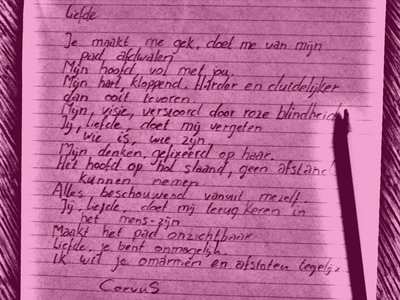 Liefde
Je maakt me gek, doet me van mijn
pad, afdwalen
Mijn hoofd, vol met jou.
Mijn hart, kloppend. Harder en duidelijker
dan ooit tevoren.
Mijn visie, verstoord door roze blindheid
Jij, liefde, doet mij vergeten
wie is, wie zijn.
Mijn denken, gefixeerd op haar.
Het hoofd op hol slaand, geen afstand
kunnen nemen
Alles beschouwend vanuit mezelf.
Jij liefde, doet mij terug keren in
het mens-zijn
Maakt het pad onzichtbaar
Liefde, je bent onmogelijk
Ik wil je omarmen en afstoten tegelijk
Corvus